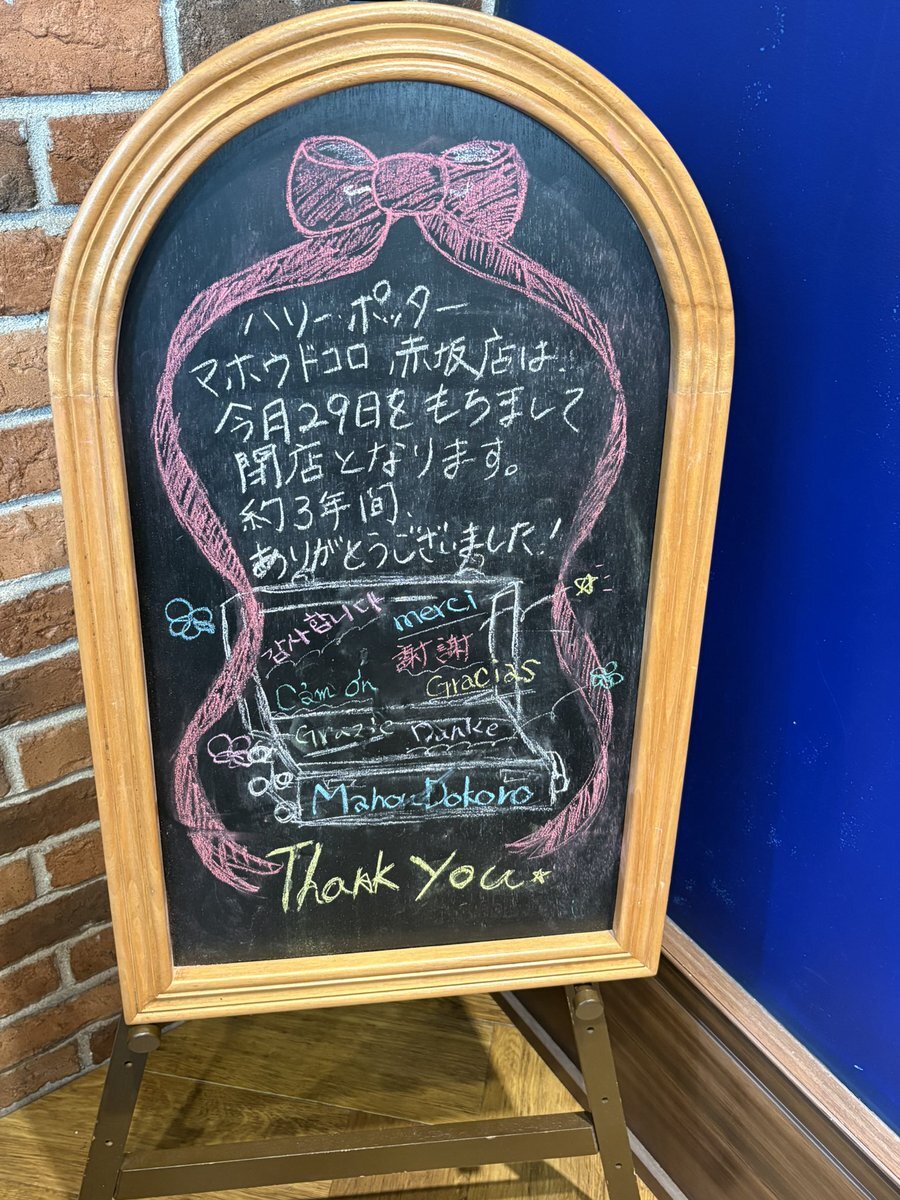 ハリーポッター
マホウドコロ 赤坂店は、
今月29日をもちまして
閉店となります。
約3年間、
ありがとうございました!
감사합니다 merci
謝謝
Cảm ơn Gracias
Grazie Danke
MahouDokoro
Thank You